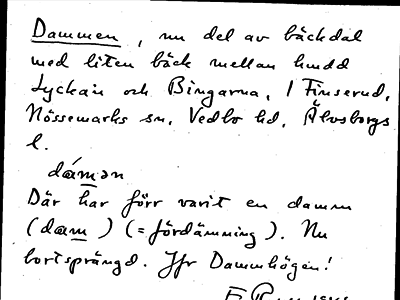 Dammen, nu del av bäckdal
med liten bäck mellan hmdd
Lyckan och Bingarna, 1 Finserud,
Nössemarks sn, Vedbo hd, Älvsborgs
l.
dámən
Där har förr varit en damm
(dam) (= fördämning). Nu
bortsprängd. Jfr Dammhögen!